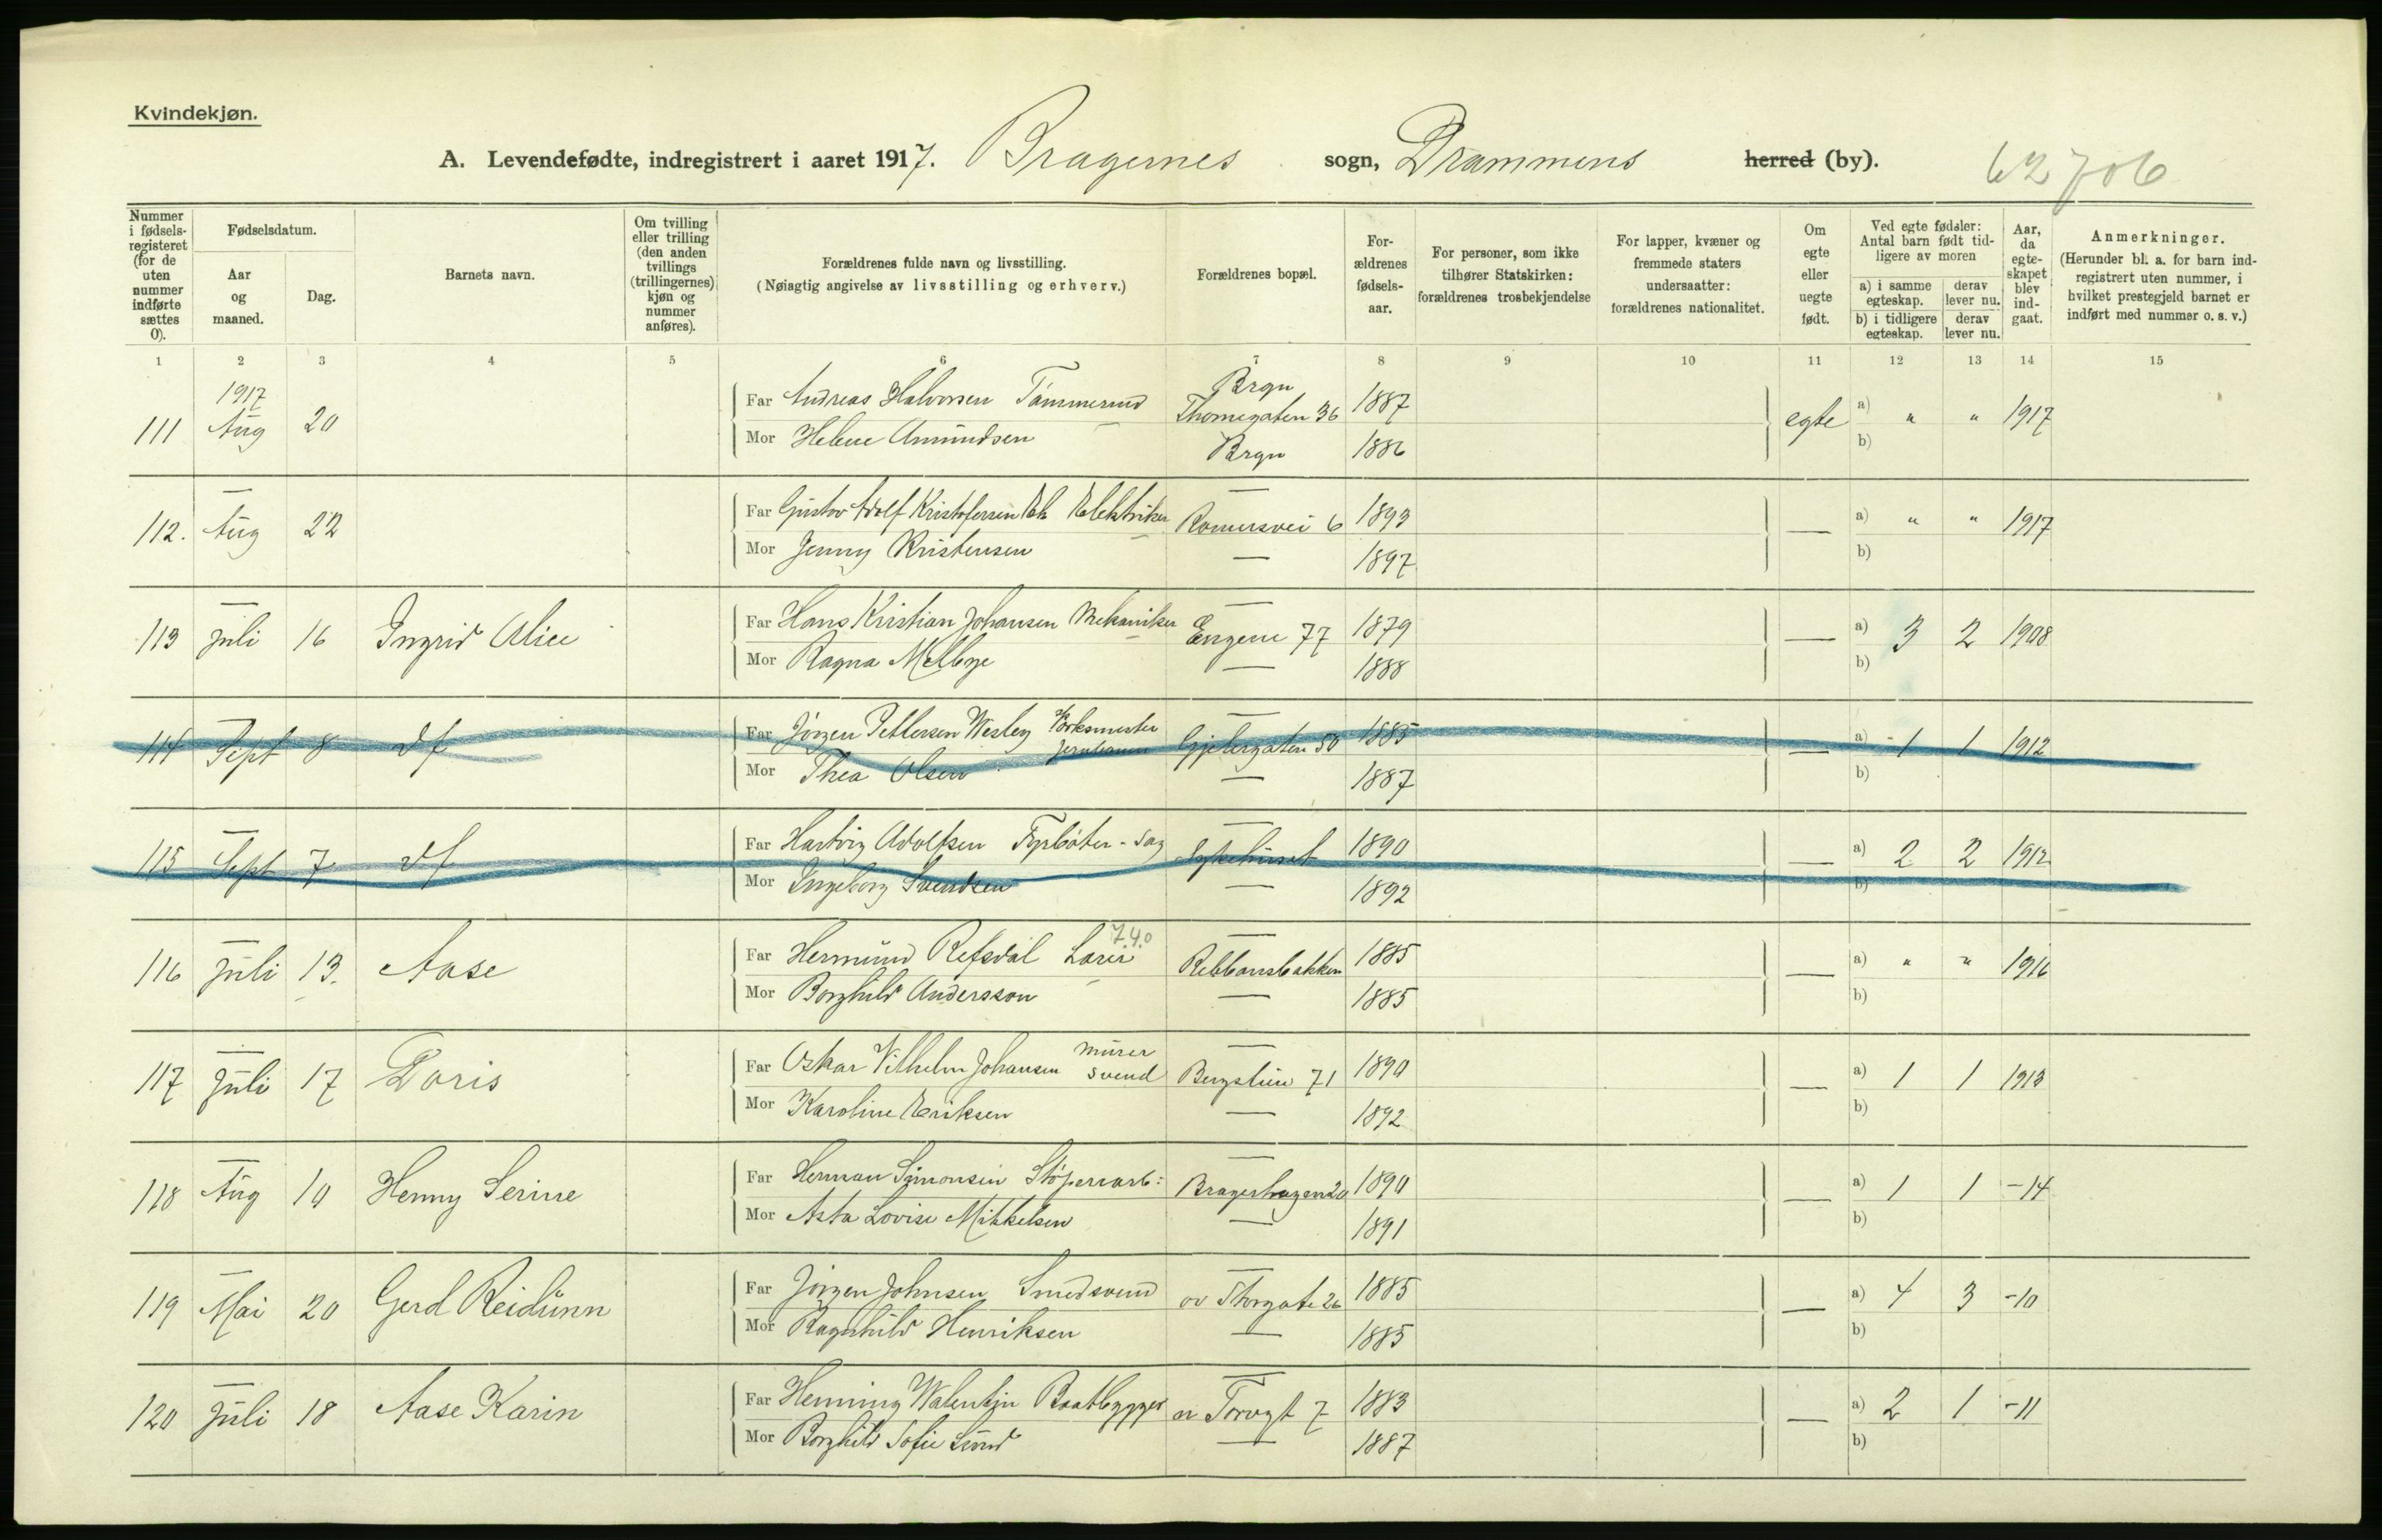 Kvindekjøn.
A. Levendefødte, indregistrert i aaret 1917. Bragernes sogn, Drammens herred (by). 62706
Nummer i fødsels-registeret (for de uten nummer indførte sættes 0).
Fødselsdatum.
Aar og maaned.
Dag.
Barnets navn.
Om tvilling eller trilling (den anden tvillings (trillingernes) kjøn og nummer anføres).
Forældrenes fulde navn og livsstilling.
(Nøiagtig angivelse av livsstilling og erhverv.)
Forældrenes bopæl.
For-ældrenes fødsels-aar.
For personer, som ikke tilhører Statskirken: forældrenes trosbekjendelse
For lapper, kvæner og fremmede staters undersaatter: forældrenes nationalitet.
Om egte eller uegte født.
Ved egte fødsler: Antal barn født tid-ligere av moren
a) i samme egteskap.
derav lever nu.
b) i tidligere egteskap.
derav lever nu.
Aar, da egte-skapet blev ind-gaat.
Anmerkninger.
(Herunder bl. a. for barn ind-registrert uten nummer, i hvilket prestegjeld barnet er indført med nummer o. s. v.)
1 2 3 4 5 6 7 8 9 10 11 12 13 14 15
1917 Brgn
111 Aug 20 Far Andreas Halvorsen Tømmermd Thornegaten 36 1887 egte a) " " 1917
Mor Helene Amundsen Brgn 1886 b)
112. Aug 22 Far Gustav Adolf Kristofersen Elektriker Romersvei 6 1893 — a) " " 1917
Mor Jenny Kristensen — 1897 b)
113 Juli 16 Ingrid Alice Far Hans Kristian Johansen Mekaniker Engene 77 1879 — a) 3 2 1908
Mor Ragna Melbye — 1888 b)
114 Sept 8 df Far Jørgen Pettersen Wesley Værksmester jernbanen Gjetergaten 50 1885 — a) 1 1 1912
Mor Thea Olsen — 1887 b)
115 Sept 7 df Far Hartvig Adolfsen Fyrbøter - sag Sykehuset 1890 — a) 2 2 1912
Mor Ingeborg Svendsen — 1892 b)
740
116 Juli 13. Aase Far Hermund Refsdal Rebbansbakken 1885 — a) " " 1916
Mor Borghild Andersson — 1885 b)
117 Juli 17 Doris Far Oskar Vilhelm Johansen murer svend Bergstien 71 1890 — a) 1 1 1913
Mor Karoline Eriksen — 1892 b)
118 Aug 10 Henny Serine Far Herman Simonsen Støperiarb: Bragerhagen 20 1890 — a) 1 1 -14
Mor Asta Lovise Mikkelsen — 1891 b)
119 Mai 20 Gerd Reidunn Far Jørgen Johnsen Smedsvend ov Storgate 26 1885 — a) 4 3 -10
Mor Ragnhild Henriksen — 1885 b)
120 Juli 18 Aase Karin Far Henning Walentin Baatbygger Torvgt 7 1883 — a) 2 1 -11
Mor Borghild Sofie Lund — 1887 b)